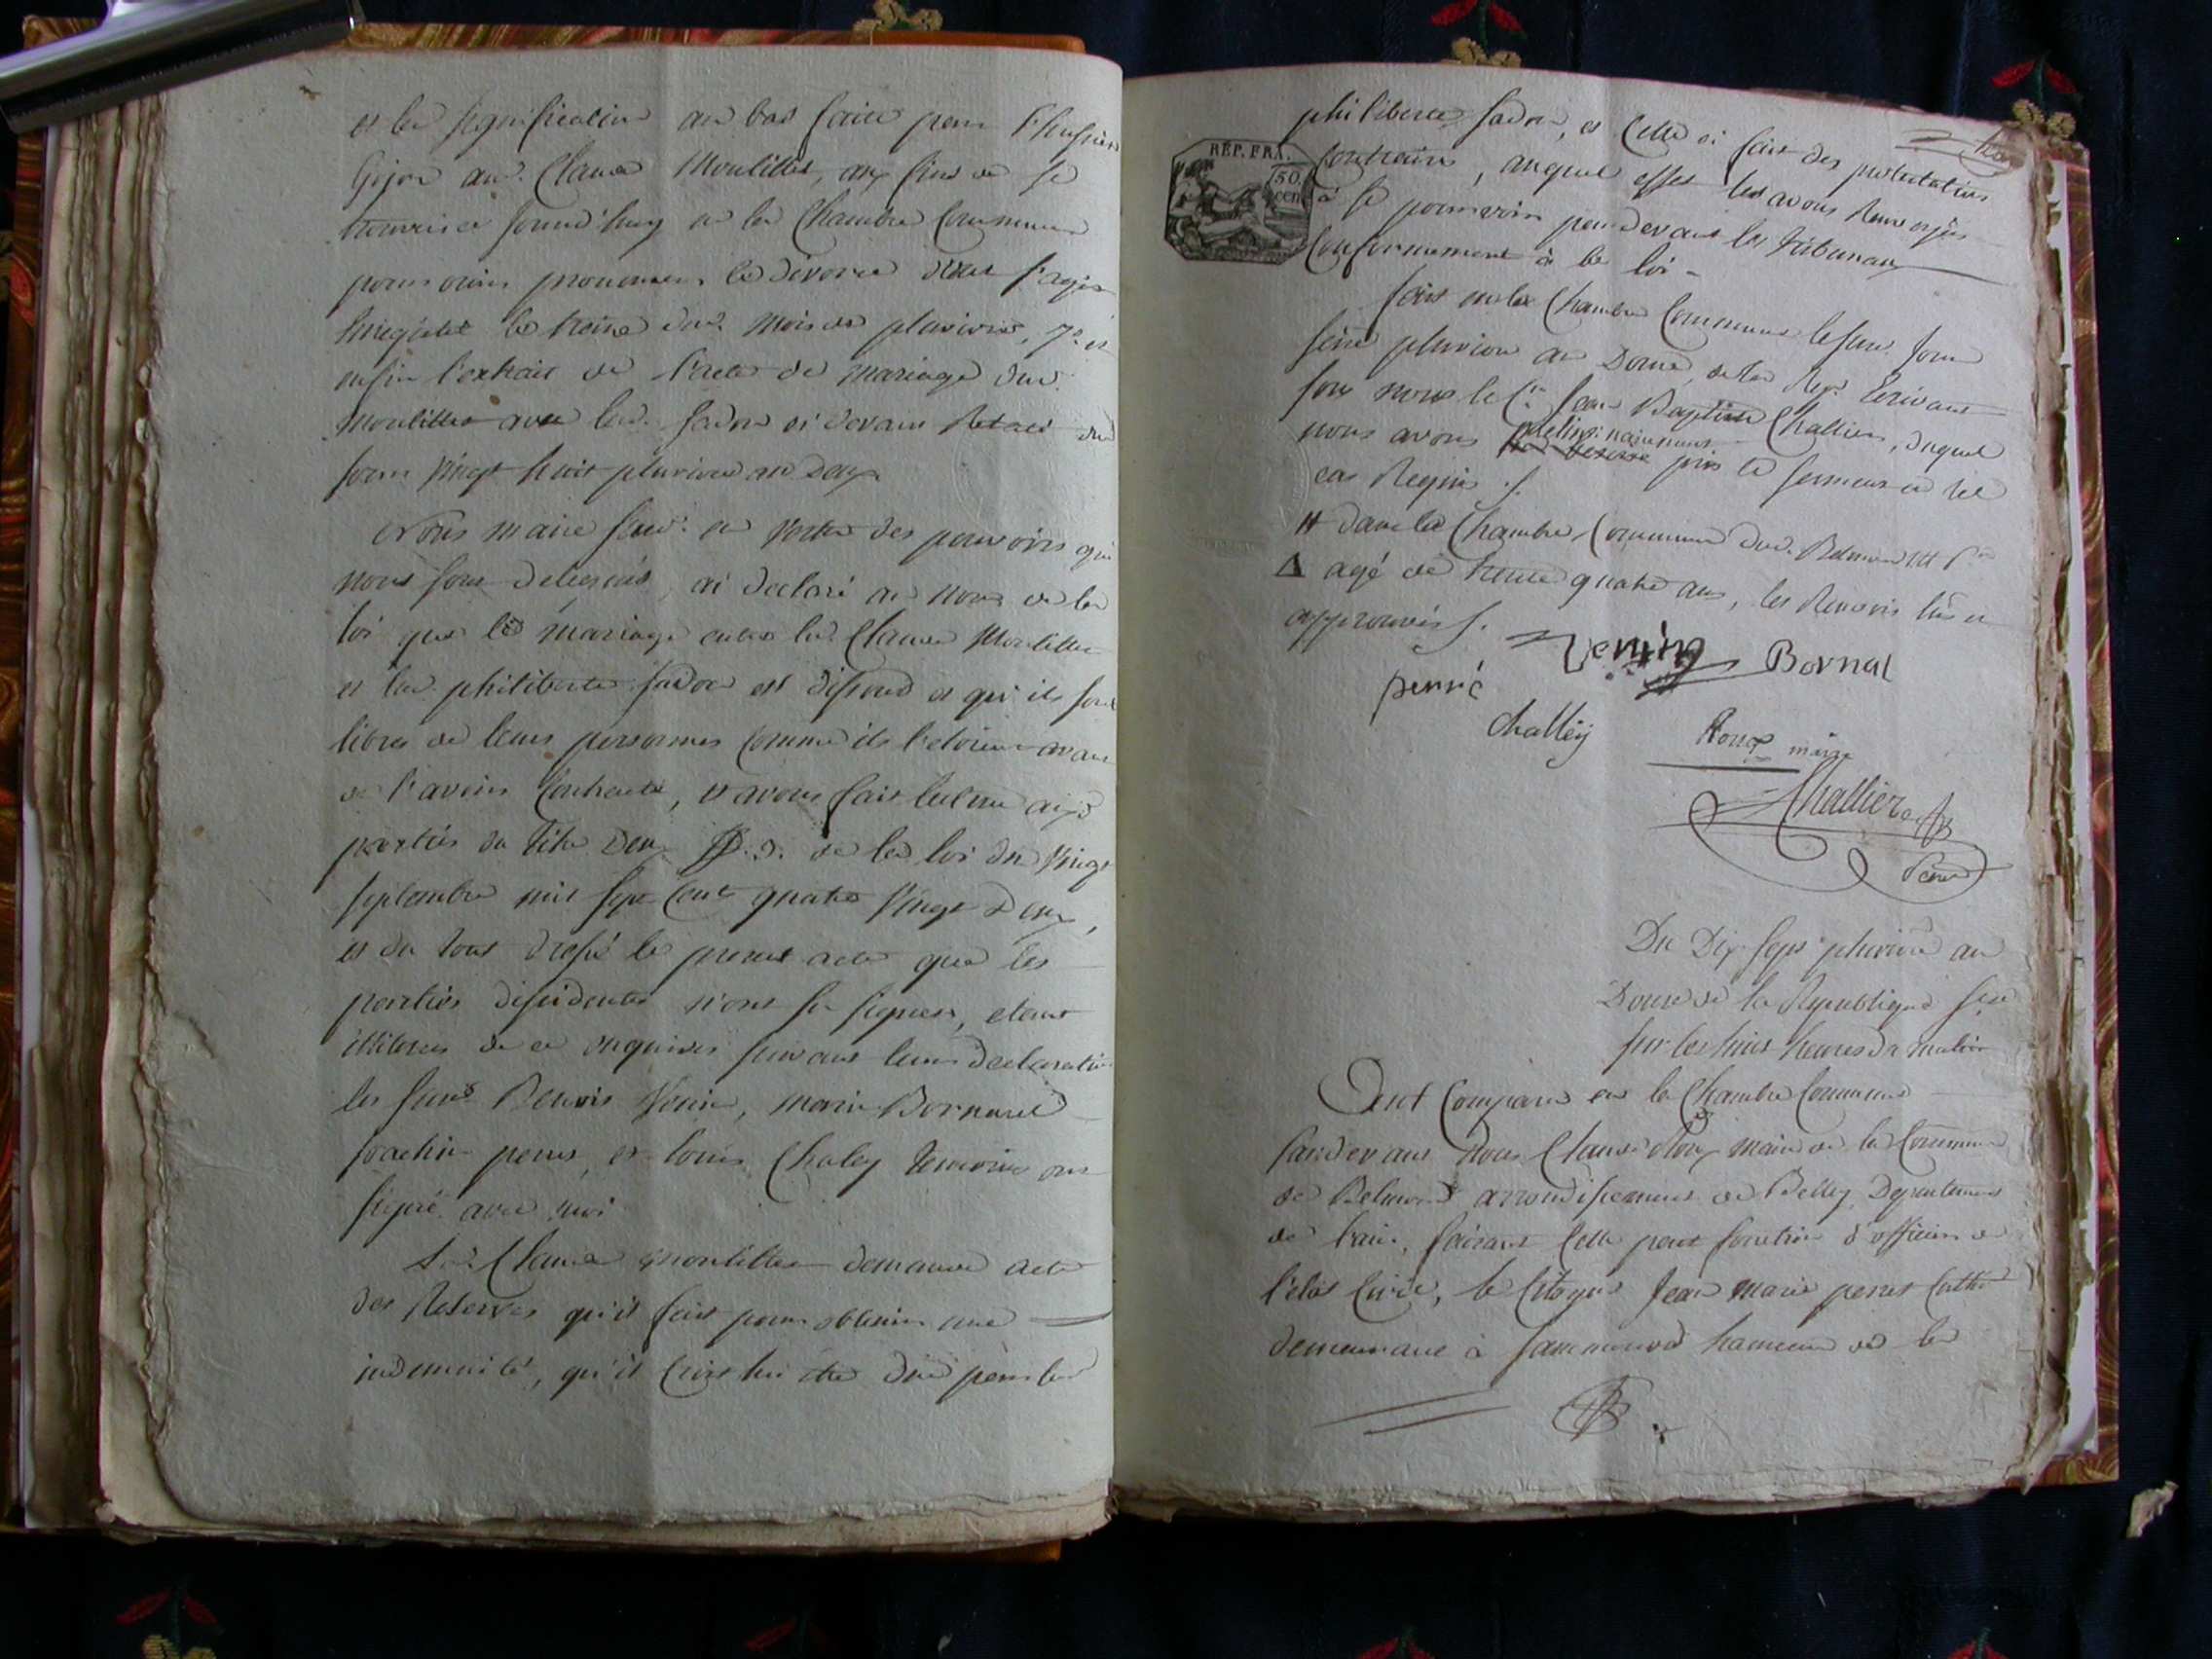 et la signification au bas faite par l'huissier
Gojon aud. Claude Moutillet, aux fins de se
trouver ce jourd'huy en la Chambre Commune
pour ouir prononcer le divorce dont s'agit
le treize dud. mois de pluviose, 7.° et
enfin l'extrait de l'acte de mariage dud.
Moutillet avec lad. Sadon ci devant Relaté du
jour vingt huit pluviose an deux
Nous maire susd. en vertu des pouvoirs qui
nous sont delegués, ai declaré au nom de la
loi que le mariage entre led. Claude Moutillet
et lad. philiberte Sadon est dissoud et qu'ils sont
libres de leurs personnes comme ils l'etoient avant
de l'avoir Contracté, et avons fait lecture aux
parties du titre deux de la loi du vingt
septembre mil sept Cent quatre vingt deux,
et du tout dressé le present acte que les
parties n'ont su signer, etant
illiteres de ce enquises suivant leur declaration
les susd. Benoit Venin, marin Bornarel
joachin perret, et louis Chaley temoins ont
signé avec moi
Led. Claude Moutillet demande acte
des Reserves qu'il fait pour obtenir une
indemnité, qu'il Croit lui etre due par lad.
philiberte Sadon, et Celle ci fait des protestations
Contraires, auquel effet les avons Renvoyés
à se pourvoir pardevant les tribunaux
Conformement à la loi
REP. FRA.
50
cen
fait en la Chambre Commune lesusd. jour
seize pluviose an Douze de la Rep. Ecrivant
sous nous le C.en Jean Baptiste Challier, duquel
nous avons preliminairement pris le serment en tel
cas Requis ./.
# dans la Chambre Commune dud. Belmont
Δ agé de trente quatre ans, les Renvois lus et
approuvés ./.
Vening Bornal
perré
challey Roux maire
Challier
Du Dix sept pluviose an
Douze de la Republique
sur les huit heures du matin
Sont Comparus en la Chambre Commune
Pardevant Nous Claude Roux maire de la Commune
de Belmont arrondissement de Belley Departement
de l'ain, faisant Celle part fonction d'officier de
l'etat Civil, le Citoyen Jean Marie perret Cult.
demeurant à hameau de la